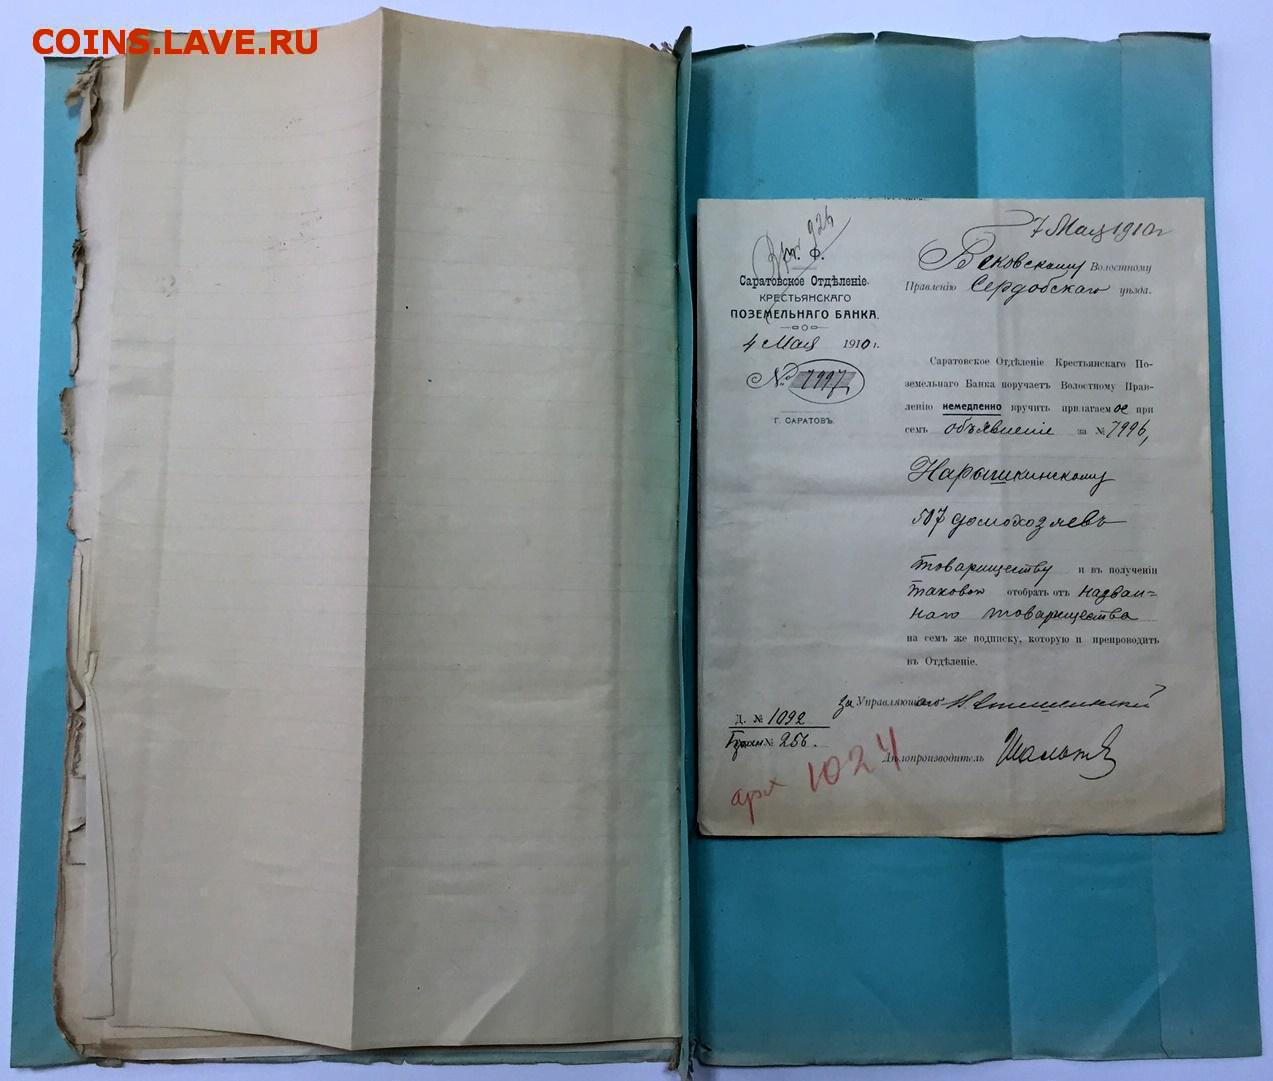 COINS.LAVE.RU
7 Мая 1910 г
М. Ф.
Саратовское Отдѣленіе
КРЕСТЬЯНСКАГО
ПОЗЕМЕЛЬНАГО БАНКА.
4 Мая 1910 г.
№ 7997
Г. САРАТОВЪ.
Бековскому Волостному
Правленію Сердобскаго уѣзда.
Саратовское Отдѣленіе Крестьянскаго По-
земельнаго Банка поручаетъ Волостному Прав-
ленію немедленно вручить прилагаемое при
семъ объявленіе за № 7996,
Нарышкинскому
507 домохозяевъ
товариществу и въ полученіи
таково отобрать отъ назван-
наго товарищества
на семъ же подписку, которую и препроводить
въ Отдѣленіе.
за Управляющаго
Д. № 1092
№ 256.
Дѣлопроизводитель
арх 1024